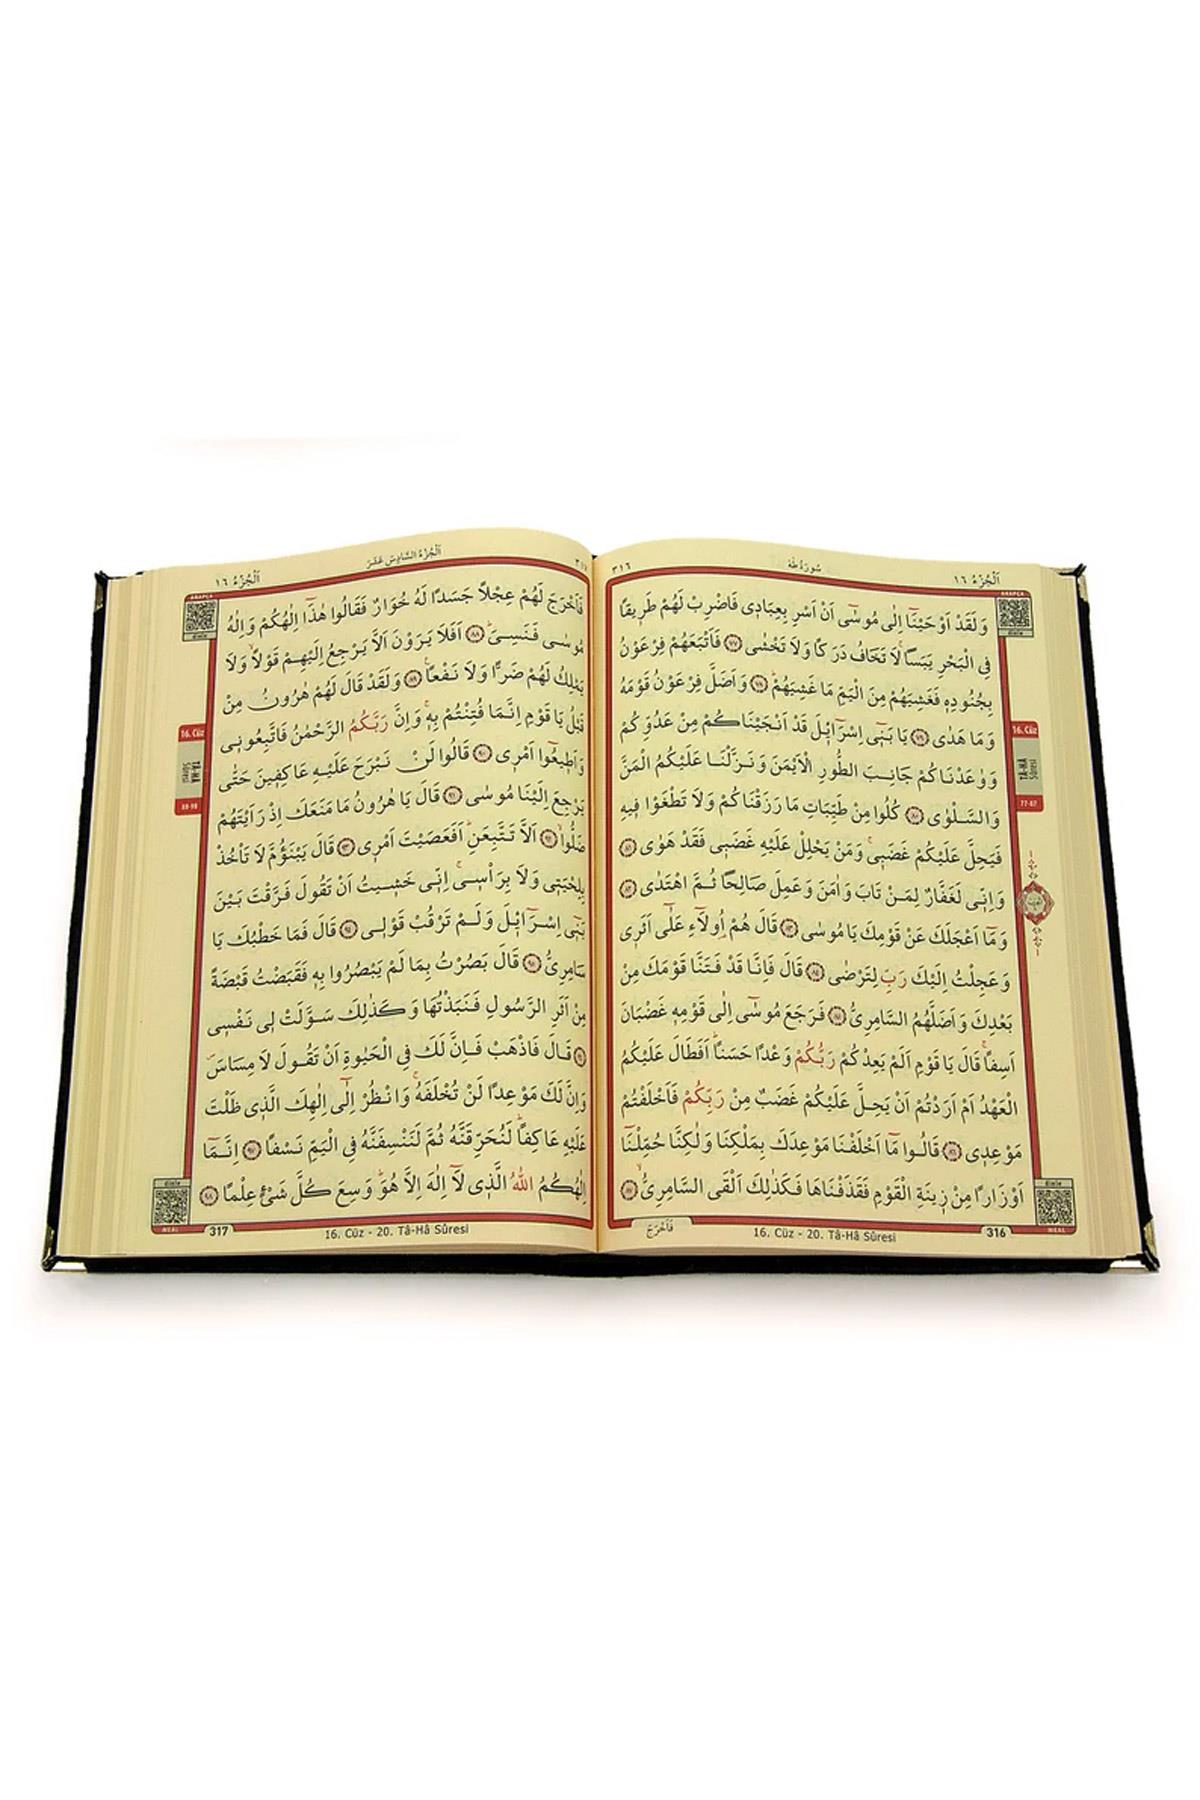 اَلْجُزْءُ ١٦
سُورَةُ طٰهٰ
٣١٦
وَلَقَدْ اَوْحَيْنَٓا اِلٰى مُوسٰٓى اَنْ اَسْرِ بِعِبَادٖى فَاضْرِبْ لَهُمْ طَرٖيقًا
فِى الْبَحْرِ يَبَسًاۙ لَا تَخَافُ دَرَكًا وَلَا تَخْشٰى ﴿٧٧﴾ فَاَتْبَعَهُمْ فِرْعَوْنُ
بِجُنُودِهٖ فَغَشِيَهُمْ مِنَ الْيَمِّ مَا غَشِيَهُمْۜ ﴿٧٨﴾ وَاَضَلَّ فِرْعَوْنُ قَوْمَهُ
وَمَا هَدٰى ﴿٧٩﴾ يَا بَنٖٓى اِسْرَٓائٖلَ قَدْ اَنْجَيْنَاكُمْ مِنْ عَدُوِّكُمْ
وَوٰعَدْنَاكُمْ جَانِبَ الطُّورِ الْاَيْمَنَ وَنَزَّلْنَا عَلَيْكُمُ الْمَنَّ
وَالسَّلْوٰى ﴿٨٠﴾ كُلُوا مِنْ طَيِّبَاتِ مَا رَزَقْنَاكُمْ وَلَا تَطْغَوْا فٖيهِ
فَيَحِلَّ عَلَيْكُمْ غَضَبٖىۚ وَمَنْ يَحْلِلْ عَلَيْهِ غَضَبٖى فَقَدْ هَوٰى ﴿٨١﴾
وَاِنّٖى لَغَفَّارٌ لِمَنْ تَابَ وَاٰمَنَ وَعَمِلَ صَالِحًا ثُمَّ اهْتَدٰى ﴿٨٢﴾
وَمَٓا اَعْجَلَكَ عَنْ قَوْمِكَ يَا مُوسٰى ﴿٨٣﴾ قَالَ هُمْ اُو۬لَٓاءِ عَلٰٓى اَثَرٖى
وَعَجِلْتُ اِلَيْكَ رَبِّ لِتَرْضٰى ﴿٨٤﴾ قَالَ فَاِنَّا قَدْ فَتَنَّا قَوْمَكَ مِنْ
بَعْدِكَ وَاَضَلَّهُمُ السَّامِرِىُّ ﴿٨٥﴾ فَرَجَعَ مُوسٰٓى اِلٰى قَوْمِهٖ غَضْبَانَ
اَسِفًاۚ قَالَ يَا قَوْمِ اَلَمْ يَعِدْكُمْ رَبُّكُمْ وَعْدًا حَسَنًاۜ اَفَطَالَ عَلَيْكُمُ
الْعَهْدُ اَمْ اَرَدْتُمْ اَنْ يَحِلَّ عَلَيْكُمْ غَضَبٌ مِنْ رَبِّكُمْ فَاَخْلَفْتُمْ
مَوْعِدٖى ﴿٨٦﴾ قَالُوا مَٓا اَخْلَفْنَا مَوْعِدَكَ بِمَلْكِنَا وَلٰكِنَّا حُمِّلْنَٓا
اَوْزَارًا مِنْ زٖينَةِ الْقَوْمِ فَقَذَفْنَاهَا فَكَذٰلِكَ اَلْقَى السَّامِرِىُّۙ ﴿٨٧﴾
فَاَخْرَجَ
16. Cüz - 20. Tâ-Hâ Sûresi
316
16. Cüz
TÂ-HÂ
Sûresi
77-87
ARAPÇA
dinle
dinle
MEAL
اَلْجُزْءُ ١٦
اَلْجُزْءُ السَّادِسَ عَشَرَ
فَاَخْرَجَ لَهُمْ عِجْلًا جَسَدًا لَهُ خُوَارٌ فَقَالُوا هٰذَٓا اِلٰهُكُمْ وَاِلٰهُ
مُوسٰى فَنَسِىَۜ ﴿٨٨﴾ اَفَلَا يَرَوْنَ اَلَّا يَرْجِعُ اِلَيْهِمْ قَوْلًاۙ وَلَا
يَمْلِكُ لَهُمْ ضَرًّا وَلَا نَفْعًاۚ ﴿٨٩﴾ وَلَقَدْ قَالَ لَهُمْ هٰرُونُ مِنْ
قَبْلُ يَا قَوْمِ اِنَّمَا فُتِنْتُمْ بِهٖۚ وَاِنَّ رَبَّكُمُ الرَّحْمٰنُ فَاتَّبِعُونٖى
وَاَطٖيعُٓوا اَمْرٖى ﴿٩٠﴾ قَالُوا لَنْ نَبْرَحَ عَلَيْهِ عَاكِفٖينَ حَتّٰى
يَرْجِعَ اِلَيْنَا مُوسٰى ﴿٩١﴾ قَالَ يَا هٰرُونُ مَا مَنَعَكَ اِذْ رَاَيْتَهُمْ
ضَلُّٓواۙ ﴿٩٢﴾ اَلَّا تَتَّبِعَنِۜ اَفَعَصَيْتَ اَمْرٖى ﴿٩٣﴾ قَالَ يَبْنَؤُ۬مَّ لَا تَأْخُذْ
بِلِحْيَتٖى وَلَا بِرَأْسٖىۚ اِنّٖى خَشٖيتُ اَنْ تَقُولَ فَرَّقْتَ بَيْنَ
بَنٖٓى اِسْرَٓائٖلَ وَلَمْ تَرْقُبْ قَوْلٖى ﴿٩٤﴾ قَالَ فَمَا خَطْبُكَ يَا
سَامِرِىُّ ﴿٩٥﴾ قَالَ بَصُرْتُ بِمَا لَمْ يَبْصُرُوا بِهٖ فَقَبَضْتُ قَبْضَةً
مِنْ اَثَرِ الرَّسُولِ فَنَبَذْتُهَا وَكَذٰلِكَ سَوَّلَتْ لٖى نَفْسٖى
﴿٩٦﴾ قَالَ فَاذْهَبْ فَاِنَّ لَكَ فِى الْحَيٰوةِ اَنْ تَقُولَ لَا مِسَاسَۖ
وَاِنَّ لَكَ مَوْعِدًا لَنْ تُخْلَفَهُۚ وَانْظُرْ اِلٰٓى اِلٰهِكَ الَّذٖى ظَلْتَ
عَلَيْهِ عَاكِفًاۜ لَنُحَرِّقَنَّهُ ثُمَّ لَنَنْسِفَنَّهُ فِى الْيَمِّ نَسْفًا ﴿٩٧﴾ اِنَّمَٓا
اِلٰهُكُمُ اللّٰهُ الَّذٖى لَٓا اِلٰهَ اِلَّا هُوَۜ وَسِعَ كُلَّ شَىْءٍ عِلْمًا ﴿٩٨﴾
317
16. Cüz - 20. Tâ-Hâ Sûresi
16. Cüz
TÂ-HÂ
Sûresi
88-98
ARAPÇA
dinle
dinle
MEAL